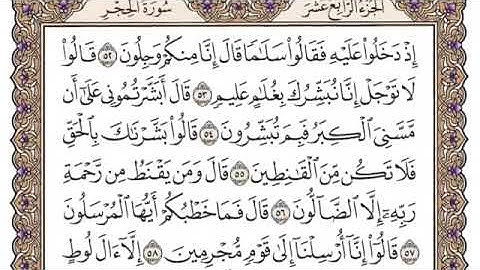 الجزء الرابع عشر سورة الحجر
إِذۡ دَخَلُواْ عَلَيۡهِ فَقَالُواْ سَلَٰمٗا قَالَ إِنَّا مِنكُمۡ وَجِلُونَ ٥٢ قَالُواْ
لَا تَوۡجَلۡ إِنَّا نُبَشِّرُكَ بِغُلَٰمٍ عَلِيمٖ ٥٣ قَالَ أَبَشَّرۡتُمُونِي عَلَىٰٓ أَن
مَّسَّنِيَ ٱلۡكِبَرُ فَبِمَ تُبَشِّرُونَ ٥٤ قَالُواْ بَشَّرۡنَٰكَ بِٱلۡحَقِّ
فَلَا تَكُن مِّنَ ٱلۡقَٰنِطِينَ ٥٥ قَالَ وَمَن يَقۡنَطُ مِن رَّحۡمَةِ
رَبِّهِۦٓ إِلَّا ٱلضَّآلُّونَ ٥٦ قَالَ فَمَا خَطۡبُكُمۡ أَيُّهَا ٱلۡمُرۡسَلُونَ
٥٧ قَالُوٓاْ إِنَّآ أُرۡسِلۡنَآ إِلَىٰ قَوۡمٖ مُّجۡرِمِينَ ٥٨ إِلَّآ ءَالَ لُوطٍ